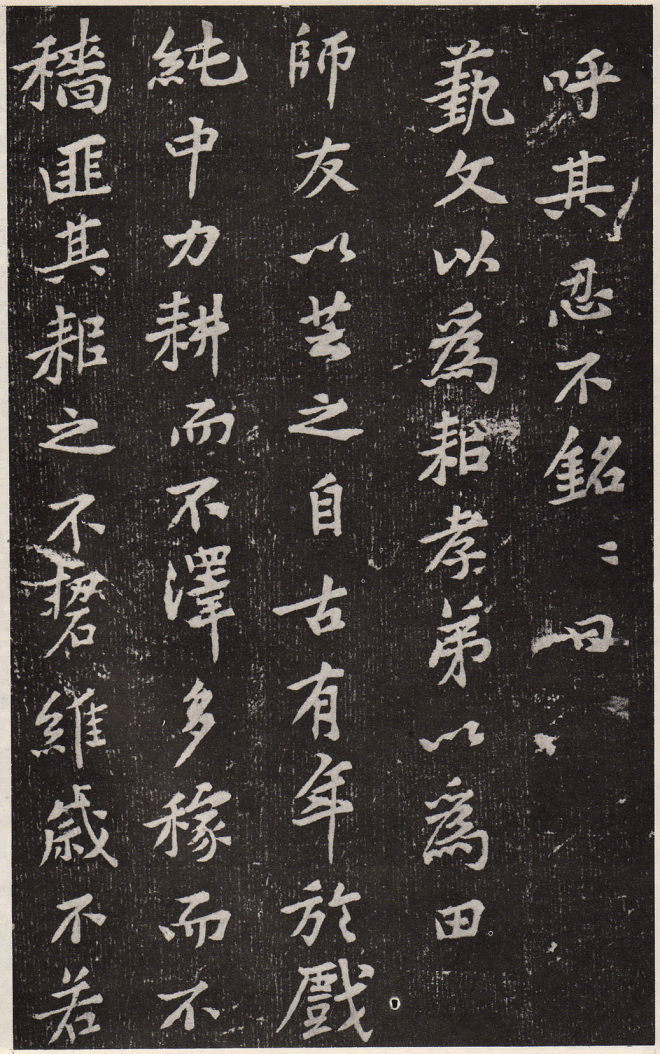 呼其忍不銘〻曰
藝文以為耜孝弟以為田
師友以芸之自古有年於戲
純中力耕而不澤多稼而不
穡匪其耜之不硩維歲不若